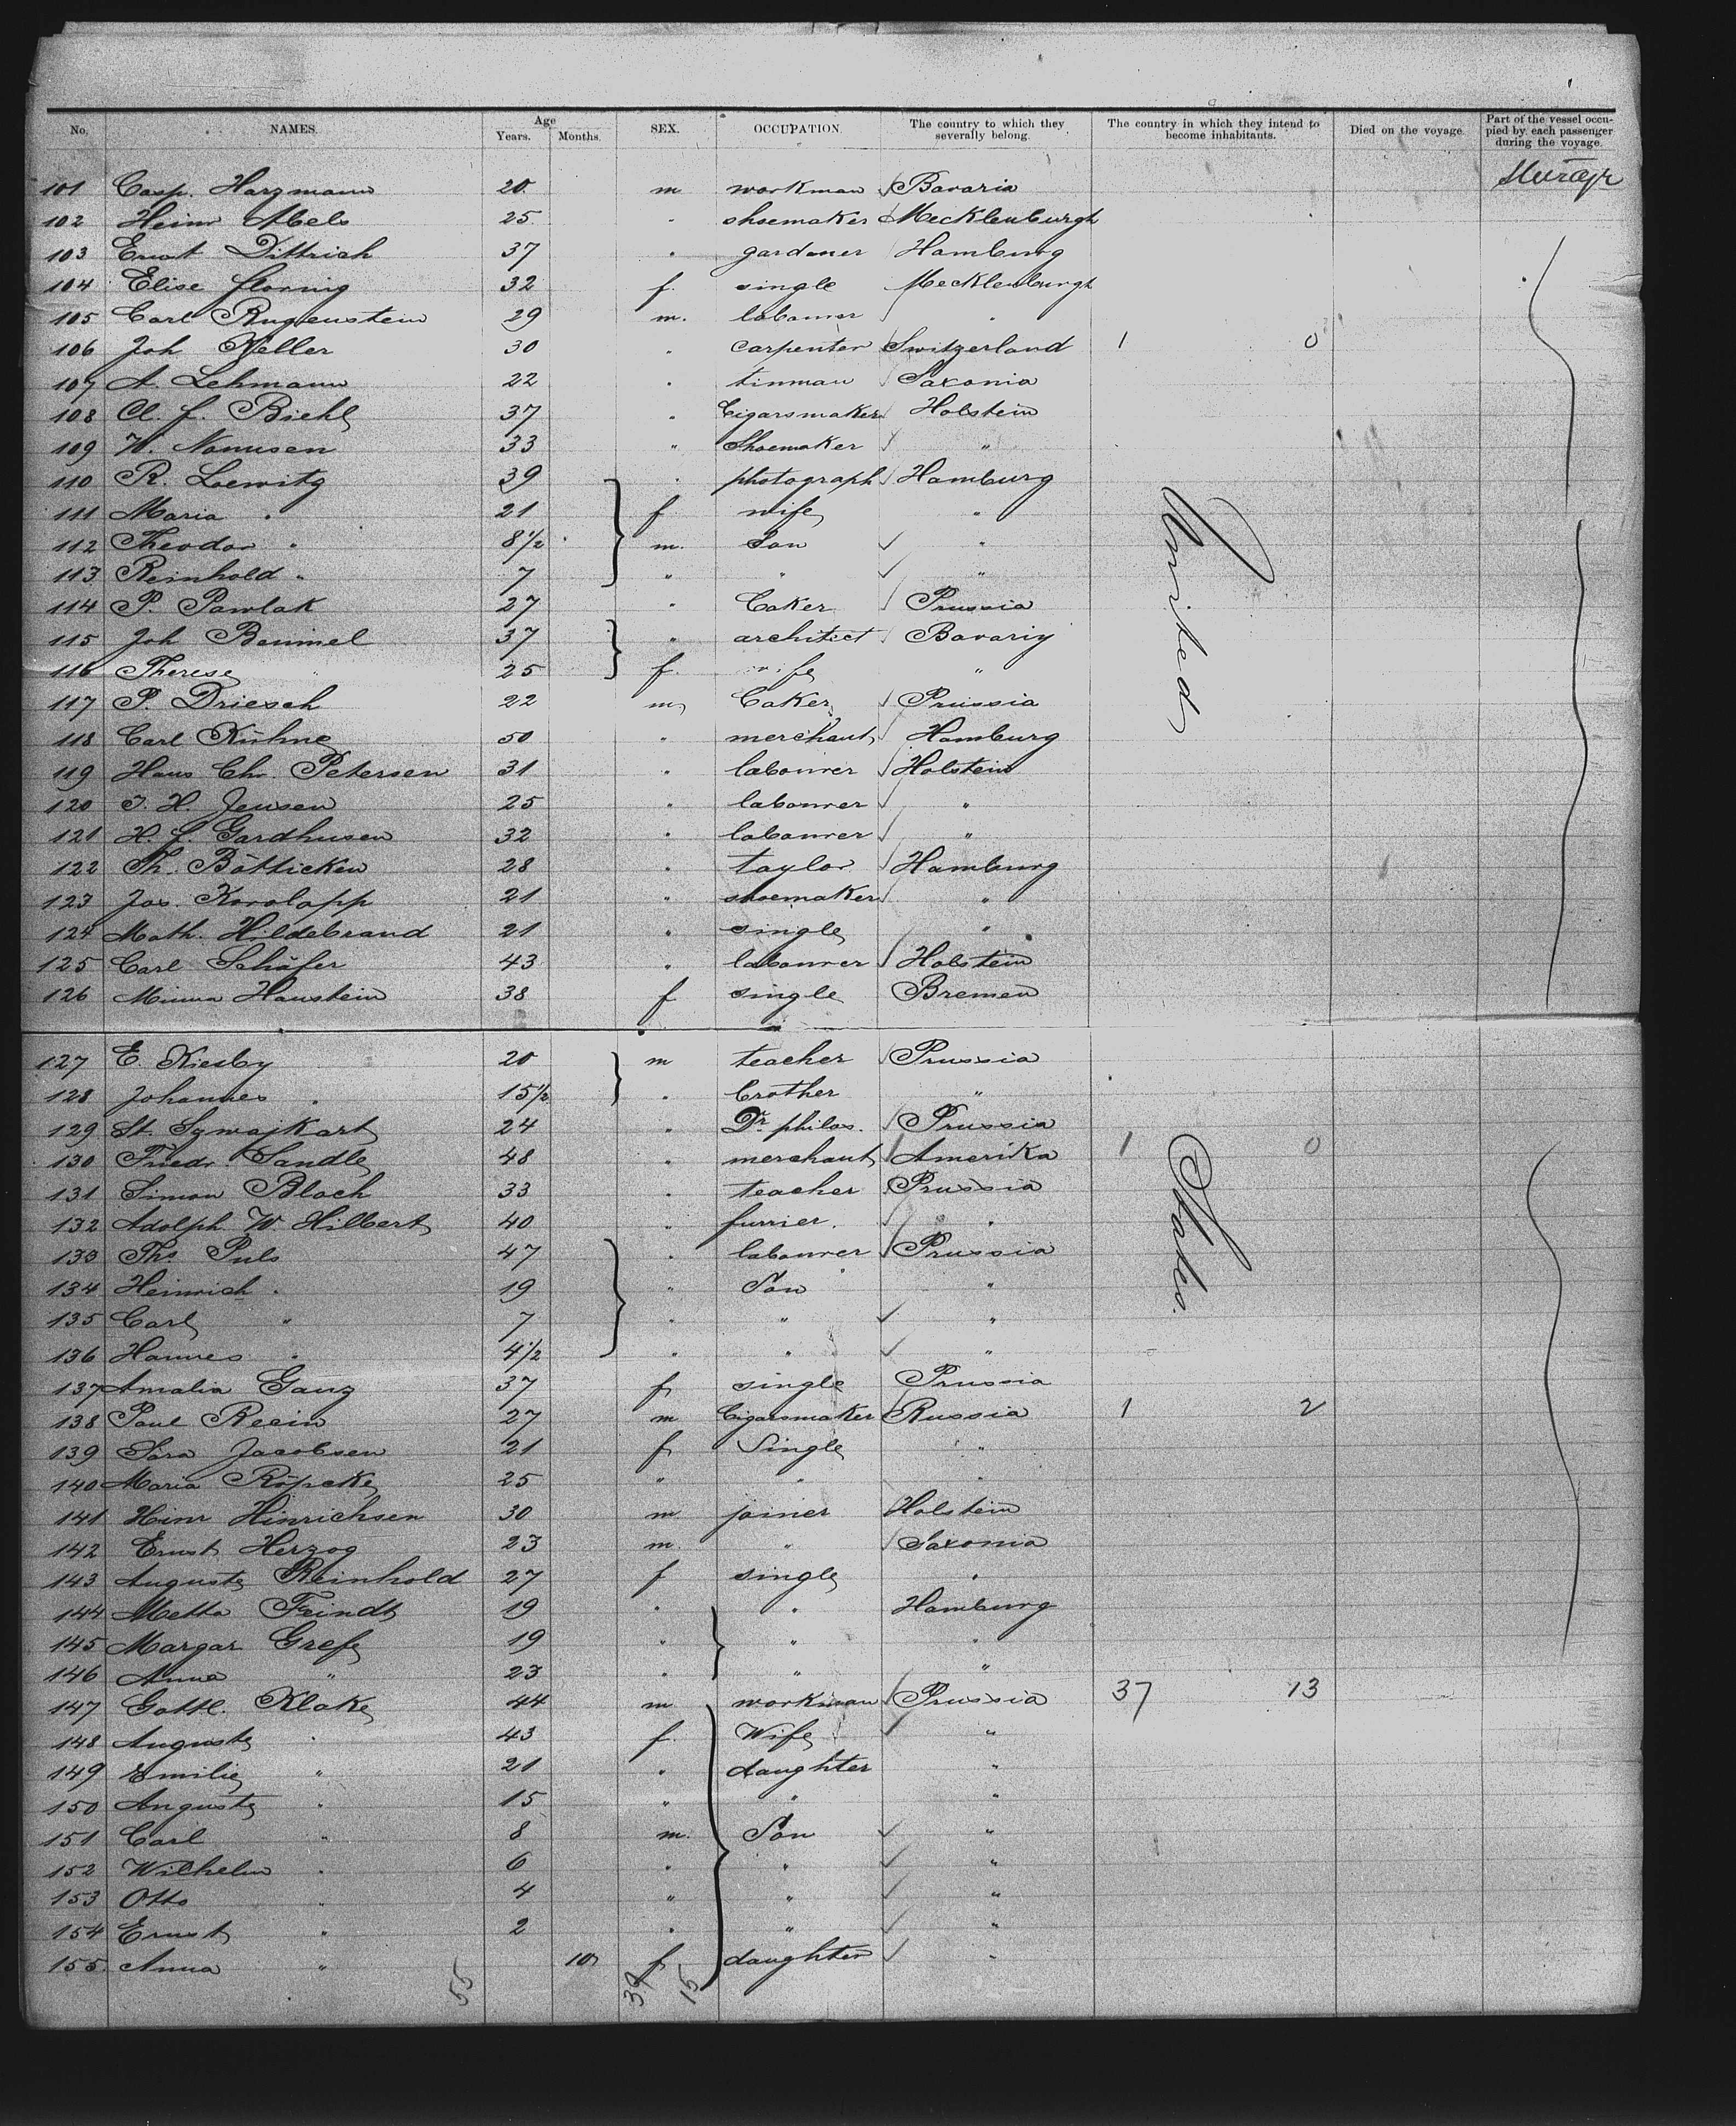 No. NAMES. Age Years. Months. SEX. OCCUPATION. The country to which they severally belong. The country in which they intend to become inhabitants. Died on the voyage. Part of the vessel occupied by each passenger during the voyage.
101 Casp. Harzmann 20 m workman Bavaria
102 Heinr Abels 25 " shoemaker Mecklenburgh
103 Ernst Dittrich 37 " gardener Hamburg
104 Elise Floring 32 f. single Mecklenburgh
105 Carl Rugenstein 29 m. labourer "
106 Joh Keller 30 " carpenter Switzerland 1 0
107 A. Lehmann 22 " tinman Saxonia
108 Cl. F. Biehl 37 " Cigarsmaker Holstein
109 W. Nomusen 33 " Shoemaker "
110 R. Loewitz 39 " photograph Hamburg
111 Maria " 21 f wife "
112 Theodor " 8 1/2 m. Son "
113 Reinhold " 7 " " "
114 P. Pawlak 27 " baker Prussia
115 Joh Beumel 37 " architect Bavariy
116 Therese " 25 f. wife "
117 P. Driesch 22 m baker Prussia
118 Carl Kühne 50 " merchant Hamburg
119 Hans Chr. Petersen 31 " labourer Holstein
120 J. H. Jensen 25 " labourer "
121 H. J. Gardhusen 32 " labourer "
122 Th. Bötticken 28 " taylor Hamburg
123 Jos. Korolapp 21 " shoemaker "
124 Math. Hildebrand 21 " single "
125 Carl Schäfer 43 " labourer Holstein
126 Minna Haustein 38 f single Bremen
United
127 E. Kiesby 20 m teacher Prussia
128 Johannes " 15 1/2 " brother "
129 St. Szwajkart 24 " Dr. philos. Prussia
130 Friedr. Sandle 48 " merchant Amerika 1 0
131 Simon Bloch 33 " teacher Prussia
132 Adolph W Hilbert 40 " furrier. "
133 Ths. Puls 47 " labourer Prussia
134 Heinrich " 19 " Son "
135 Carl " 7 " " "
136 Hannes " 4 1/2 " " "
States.
137 Amalia Ganz 37 f single Prussia
138 Paul Reein 27 m Cigarsmaker Russia 1 2
139 Sara Jacobsen 21 f Single "
140 Maria Röpcke 25 " " "
141 Heinr Hinrichsen 30 m joiner Holstein
142 Ernst Herzog 23 m. " Saxonia
143 Auguste Reinhold 27 f single "
144 Metta Feindt 19 " " Hamburg
145 Margar Grefe 19 " " "
146 Anna " 23 " " "
147 Gottl. Klake 44 m workman Prussia 37 13
148 Auguste " 43 f. Wife "
149 Emilie " 21 " daughter "
150 Auguste " 15 " " "
151 Carl " 8 m. Son "
152 Wilhelm " 6 " " "
153 Otto " 4 " " "
154 Ernst " 2 " " "
155 Anna " 10 f daughter "
55 39 15